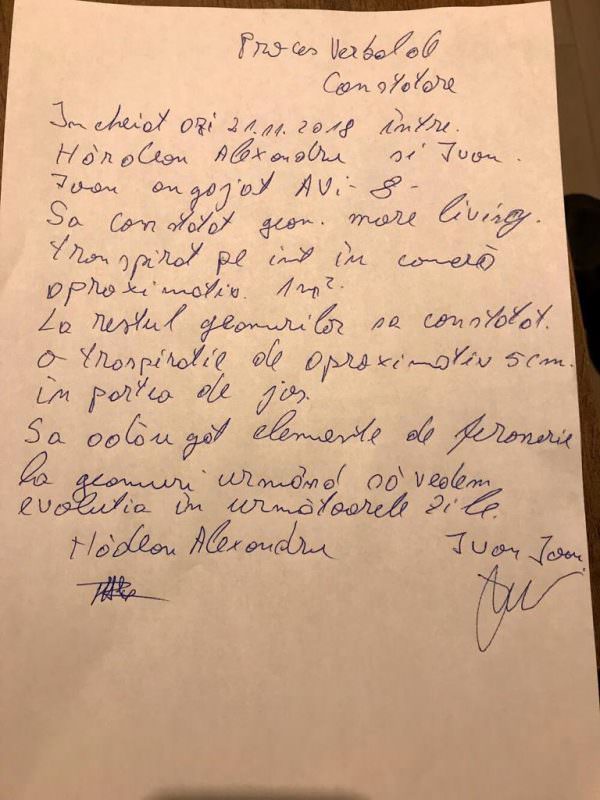 Proces Verbal de
Constatare
Incheiat azi 21.11.2018 între
Hàrdeon Alexandru si Ivan.
Ivan angajat AVi-8-
Sa constatat geam. mare living.
transpirat pe int în cameră
aproximativ. 1m².
La restul geamurilor sa constatat.
o traspiratie de aproximativ 5cm.
în partea de jos.
Sa adăugat elemente de feronerie
la geamuri urmând să vedem
evolutia în următoarele zile.
Hàdeon Alexandru Ivan Ioan.